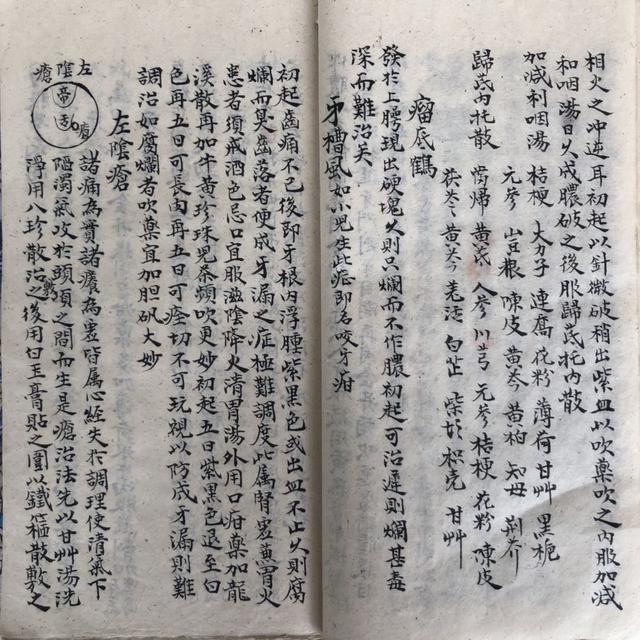 相火之冲逆耳初起以針微破稍出紫血以吹藥吹之內服加減
和咽湯日久成膿破之後服歸芪托內散
加减利咽湯 桔梗 大力子 連翹 花粉 薄荷 甘艸 黑梔
元參 山豆根 陳皮 黃芩 黃柏 知母 荊芥
歸芪內托散 當歸 黃芪 人參 川芎 元參 桔梗 花粉 陳皮
茯苓 黃芩 羌活 白芷 柴胡 枳壳 甘艸
瘤底鶴
發於上腭現出硬塊久則只爛而不作膿初起可治遲則爛甚毒
深而難治矣
牙槽風如小兒生此症即名咬牙疳
初起齒痛不已後即牙根內浮腫紫黑色或出血不止久則腐
爛而臭齒落者便成牙漏之症極難調度此属腎虛黄胃火
患者須戒酒色忌口宜服滋陰降火清胃湯外用口疳藥加龍
溪散再加牛黃珍珠兒茶頻吹更妙初起五日紫黑色退至白
色再五日可長肉再五日可痊切不可玩視以防成牙漏則難
調治如腐爛者吹藥宜加胆矾大妙
左陰瘡
左陰瘡
諸痛為實諸癢為虛皆属心經失於調理使清氣下
陷濁氣攻於頭項之間而生是瘡治法先以甘艸湯洗
淨用八珍散治之後用白玉膏貼之圍以鐵箍散敷之